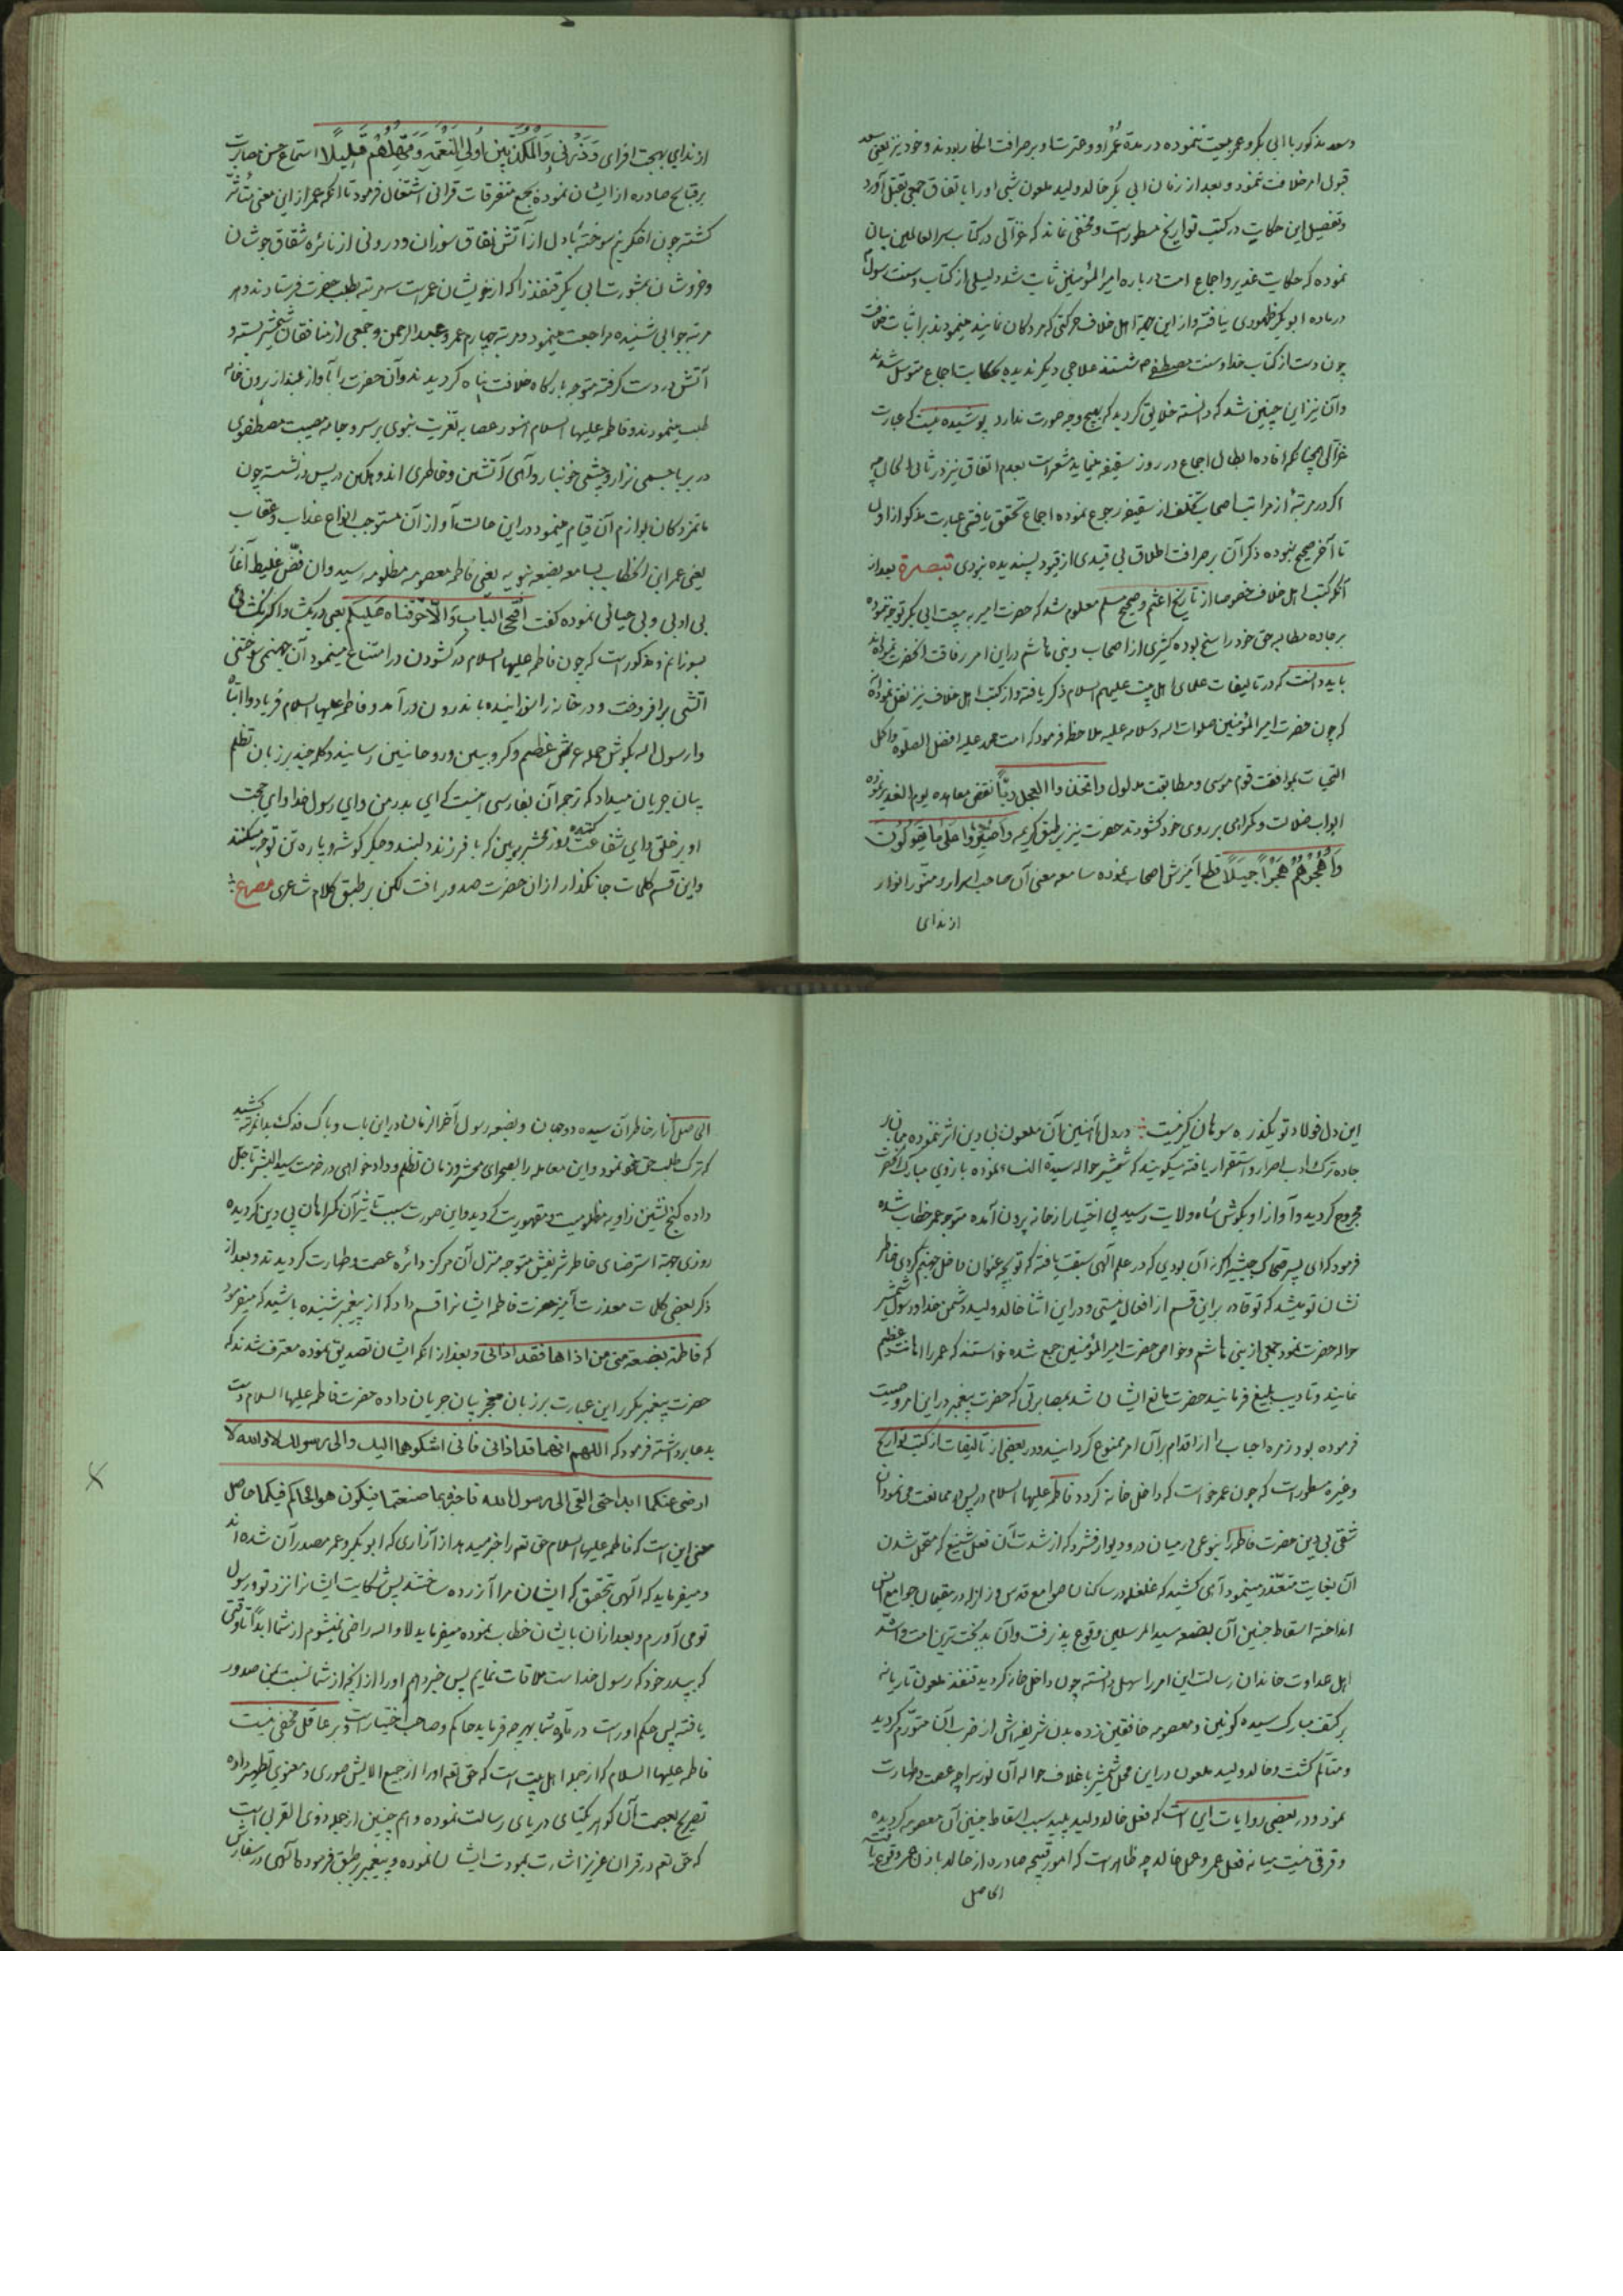 وسعد مذکور با ابی بکر و عمر بیعت ننموده در مدة عمر او و عترت او بر صرافت انکار بودند و خود نیز یعنی سعد
قبول امر خلافت ننمود و بعد از زمان ابی بکر خالد ولید ملعون شبی او را باتفاق جمعی بقتل آورد
و تفصیل این حکایت در کتب تواریخ مسطور است و مخفی نماند که غزالی در کتاب سر العالمین بیان
نموده که حکایت غدیر و اجماع امت درباره امیر المؤمنین ثابت شد و دلیلی از کتاب و سنت رسول
در ماده ابو بکر ظهوری نیافته و از این جهة اهل خلاف حرکتی که مردکان نمایند مینمودند بر اثبات خلافت
چون دست از کتاب خدا و سنت مصطفی شستند علاجی دیگر ندیده بحکایت اجماع متوسل شدند
و آن نیز این چنین شد که دانسته خلایق گردید که بهیچ وجه صورت ندارد پوشیده نیست که عبارت
غزالی همچنانکه افاده ابطال اجماع در روز سقیفه مینماید مشعر است بعدم اتفاق نیز در ثانی الحال چه
اگر در مرتبهٔ از مراتب اصحاب تخلف از سقیفه رجوع نموده اجماع تحقق یافتی عبارت مذکور از اول
تا آخر صحیح نبوده ذکر آن بر صرافت اطلاق بی قیدی از قیود پسندیده نبودی تبصرة بعد از
آنکه کتب اهل خلاف خصوصا از تاریخ اعثم و صحیح مسلم معلوم شد که حضرت امیر به بیعت ابی بکر توجه ننموده
بر جاده مطالبه حق خود راسخ بوده کثیری از اصحاب و بنی هاشم در این امر رفاقت آنحضرت نموده اند
باید دانست که در تالیفات علمای اهل بیت علیهم السلام ذکر یافته و از کتب اهل خلاف نیز نقل نموده اند
که چون حضرت امیر المؤمنین صلوات الله و سلامه علیه ملاحظه فرمود که امت محمد علیه افضل الصلوة و اکمل
التحیات بموافقت قوم موسی و مطابقت مدلول و اتخذوا العجل ربّاً نقض معاهده یوم الغدیر نموده
ابواب ضلالت و گمراهی بر روی خود گشودند حضرت نیز بر طبق کریمه وَاصْبِرْ عَلَىٰ مَا یَقُولُونَ
وَاهْجُرْهُمْ هَجْرًا جَمِیلًا قطع آمیزش اصحاب نموده سامعه معنی آن صاحب اسرار و منور انوار
از ندای
از ندای بهجت افزای وَذَرْنِی وَالْمُكَذِّبِینَ أُولِی النَّعْمَةِ وَمَهِّلْهُمْ قَلِیلًا استماع حسن مصابرت
بر قبایح صادره از ایشان نموده بجمع متفرقات قرانی اشتغال فرمود تا آنکه عمر از این معنی متأثر
گشته چون اخگر نیم سوخته با دل از آتش نفاق سوزان و درونی از نائره شقاق جوشان
و خروشان بمشورت ابی بکر قنفذ را که از خویشان عمر است سه مرتبه بطلب حضرت فرستادند در هر
مرتبه جوابی شنیده مراجعت مینمود و مرتبه چهارم عمر و عبد الرحمن و جمعی از منافقان شمشیر بسته و
آتش در دست گرفته متوجه بارگاه خلافت پناه گردیدند و آن حضرت را بآواز بلند از برون خانه
طلب مینمودند و فاطمه علیها السلام هنوز عصابه تعزیت نبوی بر سر و جامه مصیبت مصطفوی
در بر با جسمی نزار و چشمی خونبار و آهی آتشین و خاطری اندوهگین در پس در نشسته چون
ماتمزدگان بلوازم آن قیام مینمود در این حالت آواز آن مستوجب انواع عذاب و عقاب
یعنی عمر ابن الخطاب بسامعه بضعه نبویه یعنی فاطمه معصومه مظلومه رسید و ان فض غلیظ آغاز
بی ادبی و بی حیائی نموده گفت افتحی الباب والّا حرقناه علیکم یعنی در بگشا و اگر نگشائی
بسوزانم و مذکور است که چون فاطمه علیها السلام در گشودن در امتناع مینمود آن جهنمی سوختنی
آتشی بر افروخت و در خانه را سوزانیده باندرون در آمد و فاطمه علیها السلام فریاد وا ابتاه
وا رسول الله بگوش حمله عرش عظیم و کروبیین و روحانیین رسانید و کلمه چند بر زبان تظلم
بیان جریان میداد که ترجمه آن بفارسی اینست که ای پدر من و ای رسول خدا و ای حجت
او بر خلق و ای شفاعت کننده روز محشر ببین که با فرزند دلبند و جگر گوشه و پاره تن تو چه میکنند
و این قسم کلمات جانگداز از آن حضرت صدور یافت لکن بر طبق کلام شاعری مصراع
این دل فولاد تو یکذره سوهان گیر نیست در دل آهنین آن ملعون بی دین اثر ننموده همان بر
جاده ترک ادب اصرار و استقرار یافته میگویند که شمشیر حواله سیدة النساء نموده بازوی مبارک آنحضرت
مجروح گردید و آواز او بگوش شاه ولایت رسید بی اختیار از خانه برون آمده متوجه عمر خطاب شده
فرمود که ای پسر ضحاک حبشیه اگر نه آن بودی که در علم الهی سبقت یافته که تو بچه عنوان داخل جهنم گردی خاطر
نشان تو میشد که تو قادر بر این قسم از افعال نیستی و در این اثنا خالد ولید دشمن خدا و رسول شمشیر
حواله حضرت نمود جمعی از بنی هاشم و خواص حضرت امیر المؤمنین جمع شده خواستند که عمر را اهانت عظیم
نمایند و تادیب بلیغ فرمایند حضرت مانع ایشان شد بمصابرتی که حضرت پیغمبر در این امر وصیت
فرموده بود زمره احباب را از اقدام بر آن امر ممنوع گردانید و در بعضی از تالیفات از کتب تواریخ
و غیره مسطور است که چون عمر خواست که داخل خانه گردد فاطمه علیها السلام در پس در ممانعت می نمود آن
شقی بی دین حضرت فاطمه را بنوعی در میان در و دیوار فشرد که از شدت آن فعل شنیع که متحمل شدن
آن بغایت متعذر مینمود آهی کشید که غلغله در ساکنان صوامع قدس و زلزله در مقیمان جوامع انس
انداخته اسقاط جنین آن بضعه سید المرسلین وقوع پذیرفت و آن بدبخت ترین امت و اشد
اهل عداوت خاندان رسالت این امر را سهل دانسته چون داخل خانه گردید قنفذ ملعون تازیانه
بر کتف مبارک سیده کونین و معصومه خافقین زده بدن شریفه اش از ضرب آن متورم گردید
و متألم گشت و خالد ولید ملعون در این محل شمشیر با غلاف حواله آن نور سراچه عصمت و طهارت
نمود و در بعضی روایات این است که فعل خالد ولید پلید سبب اسقاط جنین آن معصومه گردیده
و فرقی نیست میانه فعل عمر و عمل خالد چه ظاهر است که امور قبیحه صادره از خالد باذن عمر وقوع یافته
الحاصل
الحاصل آزار خاطر آن سیده دو جهان و بضعه رسول آخر الزمان در این باب و باک فدک بدان مرتبه کشید
که ترک طلب حق خود نمود و این معامله را بصحرای محشر و زمان تظلم و دادخواهی در خدمت سید البشر تاجیل
داده کنج نشین زاویه مظلومیت و مقهوریت گردید و این صورت سبب تاثیر آن گمراهان بی دین گردیده
روزی جهة استرضای خاطر شریفش متوجه منزل آن مرکز دائره عصمت و طهارت گردیدند و بعد از
ذکر بعضی کلمات معذرت آمیز حضرت فاطمه ایشانرا قسم داد که از پیغمبر شنیده باشید که میفرمود
که فاطمة بضعة منی من اذاها فقد اذانی و بعد از آنکه ایشان تصدیق نموده معترف شدند که
حضرت پیغمبر مکرر این عبارت بر زبان معجز بیان جریان داده حضرت فاطمه علیها السلام دست
بدعا برداشته فرمود که اللهم انهما قد اذانی فانی اشکوهما الیک والی رسولک لا والله لا
ارضی عنکما ابدا حتی القی ابی رسول الله فاخبره بما صنعتما فیکون هو الحاکم فیکما حاصل
معنی این است که فاطمه علیها السلام حق تعالی را خبر میدهد از آزاری که ابو بکر و عمر مصدر آن شده اند
و میفرماید که الهی بتحقیق که ایشان مرا آزرده ساختند پس شکایت ایشانرا نزد تو و رسول
تو می آورم و بعد از آن بایشان خطاب نموده میفرماید لا والله راضی نمیشوم از شما ابداً تا وقتی
که بپدر خود که رسول خداست ملاقات نمایم پس خبر دهم او را از آنچه از شما نسبت بمن صدور
یافته پس حکم اوراست در باره شما بهر چه فرماید حاکم و صاحب اختیار است و بر عاقل مخفی نیست
فاطمه علیها السلام که از جمله اهل بیت است که حق تعالی او را از جمیع الایش صوری و معنوی تطهیر داده
تصریح بعصمت آن گوهر یکتای دریای رسالت نموده و هم چنین از جمله ذوی القربی است
که حق تعم در قران عزیز اشارت بمودت ایشان نموده و پیغمبر بر طبق فرموده الهی در سفارش